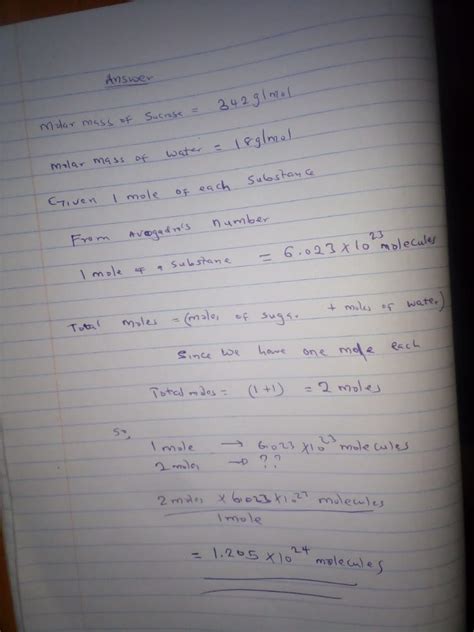 Answer
Molar mass of Sucrose = 342g/mol
molar mass of water = 18g/mol
Given 1 mole of each Substance
From Avogadro's Number
1 mole of a Substane = 6.023 x 10^23 molecules
Total moles = (moles of suga. + moles of water)
Since we have one mole each
Total moles = (1+1) = 2 moles
So,
1 mole → 6.023 x 10^23 molecules
2 moles → ??
2 moles x 6.023 x 10^23 molecules
1 mole
= 1.205 x 10^24 molecules